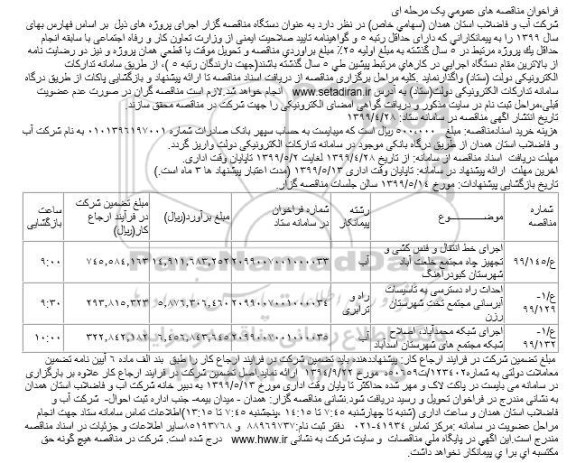 فراخوان مناقصه های عمومي یک مرحله ای
شركت آب و فاضلاب استان همدان (سهامي خاص) در نظر دارد به عنوان دستگاه مناقصه گزار اجرای پروژه های ذیل بر اساس فهارس بهای
سال ١٣٩٩ را به پیمانکارانی که دارای حداقل رتبه ٥ و گواهینامه تایید صلاحیت ایمنی از وزارت تعاون کار و رفاه اجتماعی با سابقه انجام
حداقل یك پروژه مرتبط در ٥ سال گذشته به مبلغ اولیه ٢٥٪ مبلغ براوردي مناقصه و تحویل موقت یا قطعي همان پروژه و نیز دو رضایت نامه
از بالاترین مقام دستگاه اجرایي در کارهاي مرتبط پیشین طي ٥ سال گذشته باشند(جهت دارندگان رتبه ٥ )، از طریق سامانه تدارکات
الکترونیکی دولت (ستاد) واگذارنماید .کلیه مراحل برگزاری مناقصه از دریافت اسناد مناقصه تا ارائه پیشنهاد و بازگشایی پاکات از طریق درگاه
سامانه تدارکات الکترونیکی دولت(ستاد) به آدرس www.setadiran.ir انجام خواهد شد.لازم است مناقصه گران در صورت عدم عضویت
قبلی،مراحل ثبت نام در سایت مذکور و دریافت گواهی امضای الکترونیکی را جهت شرکت در مناقصه محقق سازند.
تاریخ انتشار آگهی مناقصه در سامانه ستاد: ١٣٩٩/٤/٢٨
هزینه خرید اسنادمناقصه: مبلغ ٥٠٠،٠٠٠ ریال است که میبایست به حساب سپهر بانک صادرات شماره ٠١٠١٣٩٦١٩٧٠٠١ به نام شرکت آب
و فاضلاب استان همدان از طریق درگاه بانکی موجود در سامانه تدارکات الکترونیکی دولت واریز گردد.
مهلت دریافت اسناد مناقصه از سامانه: از تاریخ ١٣٩٩/٤/٢٨ لغایت ١٣٩٩/٥/٢ تاپایان وقت اداری.
آخرین مهلت ارائه پیشنهاد در سامانه: تاپایان وقت اداری ١٣٩٩/٥/١٣ (مدت اعتبار پیشنهاد ها ٣ ماه است.)
تاریخ بازگشایی پیشنهادات: مورخ ١٣٩٩/٥/١٤ سالن جلسات مناقصه گزار.
شماره مناقصه | موضـــوع | رشته پیمانکار | شماره فراخوان در سامانه ستاد | مبلغ برآورد(ریال) | مبلغ تضمین شرکت در فرآیند ارجاع کار(ریال) | ساعت بازگشایی
ع/٩٩/١٤٥ | اجرای خط انتقال و فنس کشی و تجهیز چاه مجتمع خلعت آباد شهرستان کبودرآهنگ | آب | ٢٠٩٩٠٠٧٠٠١٠٠٠٠٣٣ | ١٤,٩١١,٦٨٣,٢٥٢ | ٧٤٥,٥٨٤,١٦٣ | ٩:٠٠
ع/١-٩٩/١٢٩ | احداث راه دسترسی به تاسیسات آبرسانی مجتمع تخت شهرستان رزن | راه و ترابری | ٢٠٩٩٠٠٧٠٠١٠٠٠٠٣٤ | ٥,٨٧٦,٣٠٦,٤٦٠ | ٢٩٣,٨١٥,٣٢٣ | ٩:٣٠
ع/١-٩٩/١٣٢ | اجرای شبکه محمدآباد، اصلاح شبکه مجتمع های شهرستان اسدآباد | آب | ٢٠٩٩٠٠٧٠٠١٠٠٠٠٣٥ | ٦,٤٥٦,٨٤٣,٦٤٥ | ٣٢٢,٨٤٢,١٨٢ | ١٠:٠٠
مبلغ تضمین شرکت در فرایند ارجاع کار: پیشنهاددهنده باید تضمین شرکت در فرایند ارجاع کار را طبق بند الف ماده ٦ آیین نامه تضمین
معاملات دولتی به شماره١٢٣٤٠٢/ت٥٠٦٥٩ه مورخ ١٣٩٤/٩/٢٢ ارائه نماید.اصل تضمین شرکت در فرایند ارجاع کار علاوه بر بارگزاری
در سامانه می بایست در پاکت لاک و مهر شده حداکثر تا پایان وقت اداری مورخ ١٣٩٩/٥/١٣ به دبیر خانه شرکت آب و فاضلاب استان همدان
به نشانی مندرج در فراخوان تحویل و رسید دریافت شود.نشانی مناقصه گزار: همدان - میدان بیمه- جنب اداره ثبت احوال- شرکت آب و
فاضلاب استان همدان و ساعت اداری (شنبه تا چهارشنبه ٧:٤٥ تا ١٤:١٥ ،پنجشنبه ٧:٤٥ تا ١٣:١٥)اطلاعات تماس سامانه ستاد جهت انجام
مراحل عضویت در سامانه :مرکز تماس ٤١٩٣٤-٠٢١ دفتر ثبت نام:٨٨٩٦٩٧٣٧ و ٨٥١٩٣٧٦٨سایر اطلاعات و جزئیات در اسناد مناقصه
مندرج است.این آگهي در پایگاه ملي مناقصات و سایت شرکت به نشانی www.hww.ir درج شده است. شرکت در مناقصه هیچ گونه حق
مکتسبه ای برای پیمانکار نخواهد داشت.